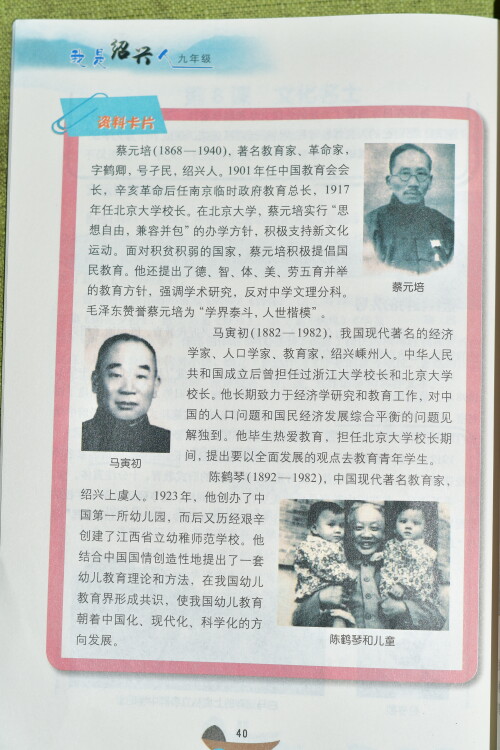 我是绍兴人 九年级
资料卡片
蔡元培(1868—1940)，著名教育家、革命家，
字鹤卿，号孑民，绍兴人。1901年任中国教育会会
长，辛亥革命后任南京临时政府教育总长，1917
年任北京大学校长。在北京大学，蔡元培实行“思
想自由，兼容并包”的办学方针，积极支持新文化
运动。面对积贫积弱的国家，蔡元培积极提倡国
民教育。他还提出了德、智、体、美、劳五育并举
的教育方针，强调学术研究，反对中学文理分科。
毛泽东赞誉蔡元培为“学界泰斗，人世楷模”。
蔡元培
马寅初(1882—1982)，我国现代著名的经济
学家、人口学家、教育家，绍兴嵊州人。中华人民
共和国成立后曾担任过浙江大学校长和北京大学
校长。他长期致力于经济学研究和教育工作，对中
国的人口问题和国民经济发展综合平衡的问题见
解独到。他毕生热爱教育，担任北京大学校长期
间，提出要以全面发展的观点去教育青年学生。
马寅初
陈鹤琴(1892—1982)，中国现代著名教育家，
绍兴上虞人。1923年，他创办了中
国第一所幼儿园，而后又历经艰辛
创建了江西省立幼稚师范学校。他
结合中国国情创造性地提出了一套
幼儿教育理论和方法，在我国幼儿
教育界形成共识，使我国幼儿教育
朝着中国化、现代化、科学化的方
向发展。
陈鹤琴和儿童
40